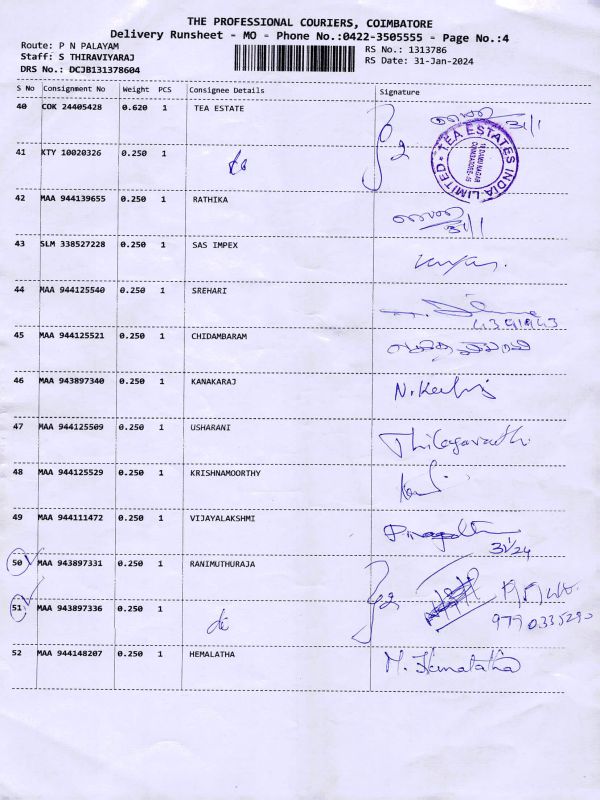 THE PROFESSIONAL COURIERS, COIMBATORE
Delivery Runsheet - MO - Phone No.:0422-3505555 - Page No.:4
Route: P N PALAYAM
RS No.: 1313786
Staff: S THIRAVIYARAJ
RS Date: 31-Jan-2024
DRS No.: DCJB131378604
S No Consignment No Weight PCS Consignee Details Signature
40 COK 24405428 0.620 1 TEA ESTATE 31/1
TEA ESTATES INDIA LIMITED
41 KTY 10020326 0.250 1 do 2
42 MAA 944139655 0.250 1 RATHIKA
31/1
43 SLM 338527228 0.250 1 SAS IMPEX
44 MAA 944125540 0.250 1 SREHARI
45 MAA 944125521 0.250 1 CHIDAMBARAM
46 MAA 943897340 0.250 1 KANAKARAJ
47 MAA 944125509 0.250 1 USHARANI
Thilagavathi
48 MAA 944125529 0.250 1 KRISHNAMOORTHY
49 MAA 944111472 0.250 1 VIJAYALAKSHMI
31/24
50 MAA 943897331 0.250 1 RANIMUTHURAJA
51 MAA 943897336 0.250 1 do 2
9790335290
52 MAA 944148207 0.250 1 HEMALATHA M. Hemalatha